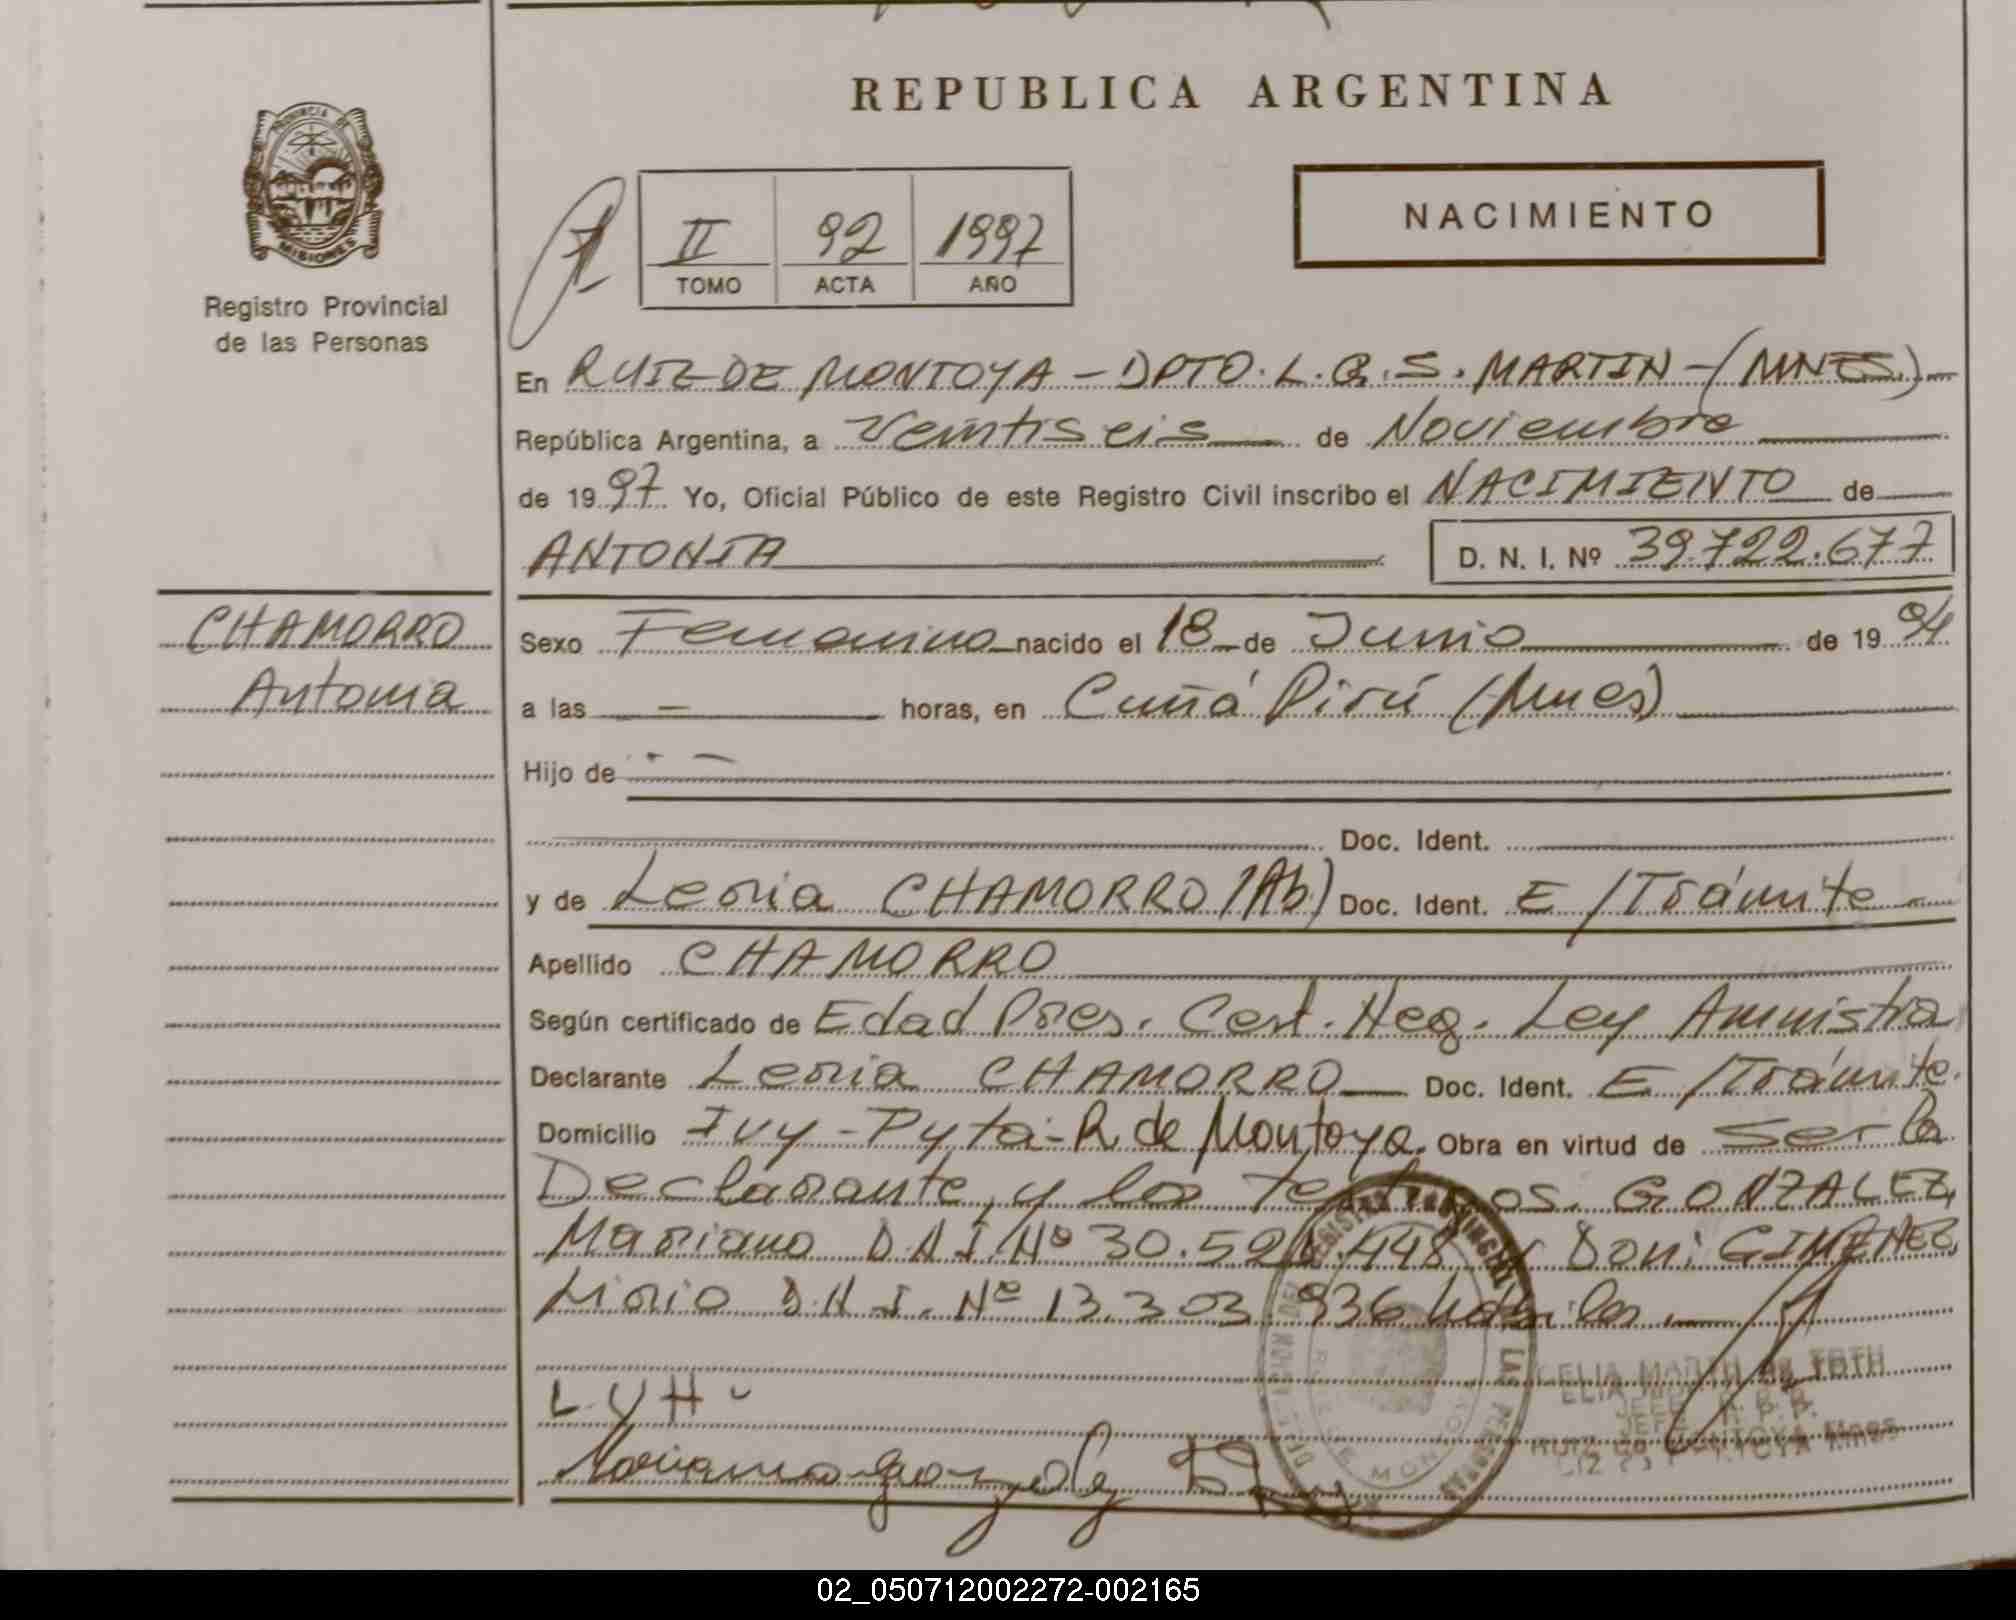 REPUBLICA ARGENTINA
PROVINCIA DE
MISIONES
Registro Provincial
de las Personas
II 92 1997
TOMO ACTA AÑO
NACIMIENTO
En RUIZ DE MONTOYA - DPTO. L. G. S. MARTIN - (MNES.)
República Argentina, a Veintiseis de Noviembre
de 1997. Yo, Oficial Público de este Registro Civil inscribo el NACIMIENTO de
ANTONIA D. N. I. Nº 39.722.677
CHAMORRO
Antonia
Sexo Femenino nacido el 18 de Junio de 1994
a las — horas, en Cuñá Pirú (Mnes)
Hijo de . —
Doc. Ident.
y de Leoria CHAMORRO (Ab) Doc. Ident. E /Trámite
Apellido CHAMORRO
Según certificado de Edad Pres. Cert. Neg. Ley Amnistia
Declarante Leoria CHAMORRO Doc. Ident. E /Trámite.
Domicilio Ivy-Pyta- R. de Montoya. Obra en virtud de Ser la
Declarante, y los Testigos. GONZALEZ,
Mariano D.N.I. Nº 30.52 .448 y Don: GIMENEZ,
Lirio D.N.I. Nº 13.303.936
L.C.H-
Mariano gonzalez
CELIA MARTH de TOTH
JEFE R. P. P.
RUIZ DE MONTOYA Mnes
02_050712002272-002165